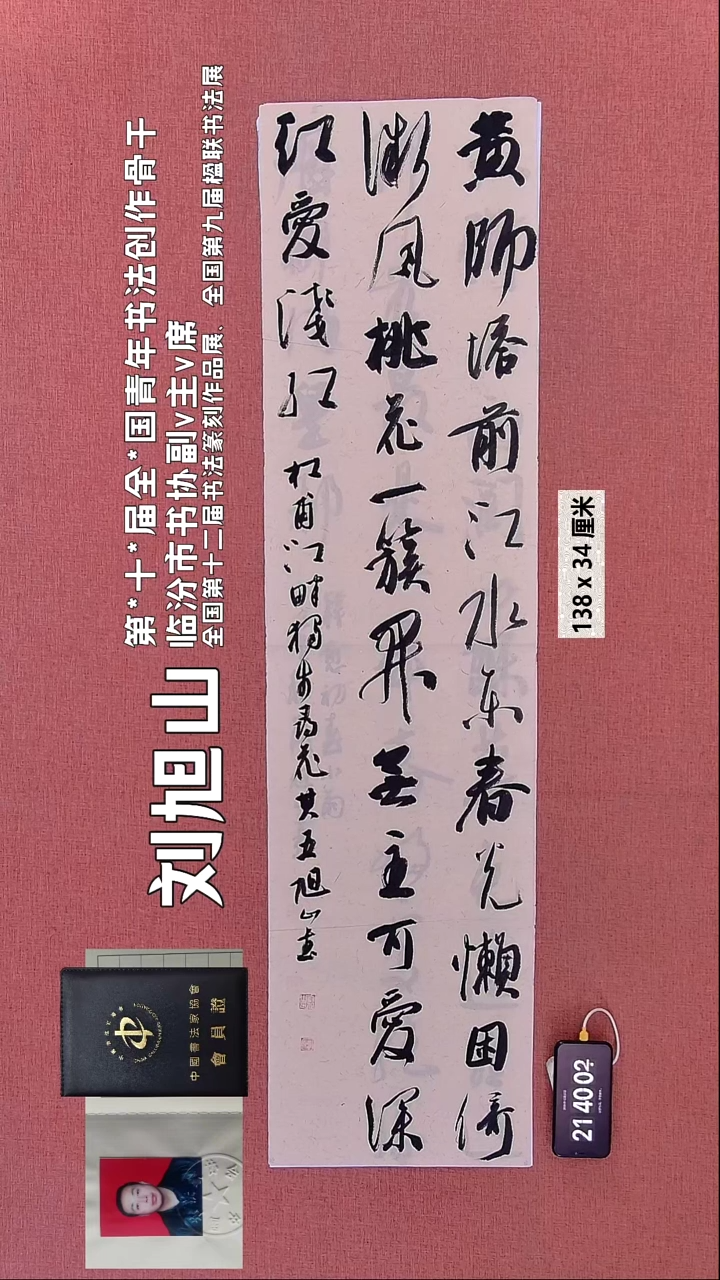 黄師塔前江水东春光懶困倚
微风桃花一簇開無主可愛深
红愛淺红
杜甫江畔獨步尋花其五旭山書
第*十*届全*国青年书法创作骨干
临汾市书协副v主v席
全国第十二届书法篆刻作品展、全国第九届楹联书法展
刘旭山
中國書法家協會
會員證
138 x 34 厘米
21 40 02